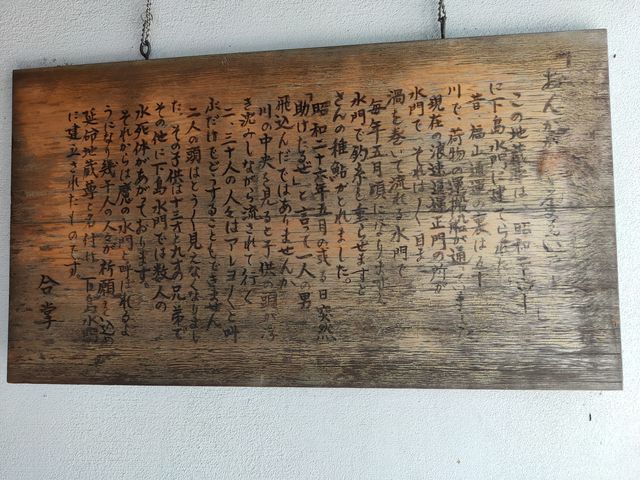 この地蔵尊は 昭和二十六年
に下島水門に建てられた
昔 福山通運の裏は
川で、荷物の運搬船が通
現在の浪速通運正門の所が
水門で それは 目まで
渦を巻いて流れる水門で
毎年五月頃になります
水門で釣糸を垂らせますと
さんの稚鮎がとれました。
「昭和二十六年五月の或る日突然
「助けたるぜ」と言って一人の男
飛込んだではありませんか
川の中央を見ると子供の頭が浮
き沈みしながら流されて行く
二、三十人の人々はアレヨ〱と叫
ぶだけでどうすることもできません
二人の頭はとう〱見えなくなりまし
た、その子供は十三才と九才の兄弟で
その他に下島水門では数人の
水死体があがっております。
それからは魔の水門と呼ばれるよ
うになり幾千人の人々が祈願を込め
延命地蔵尊と名付け 下島水門
に建立されたものです。
合掌